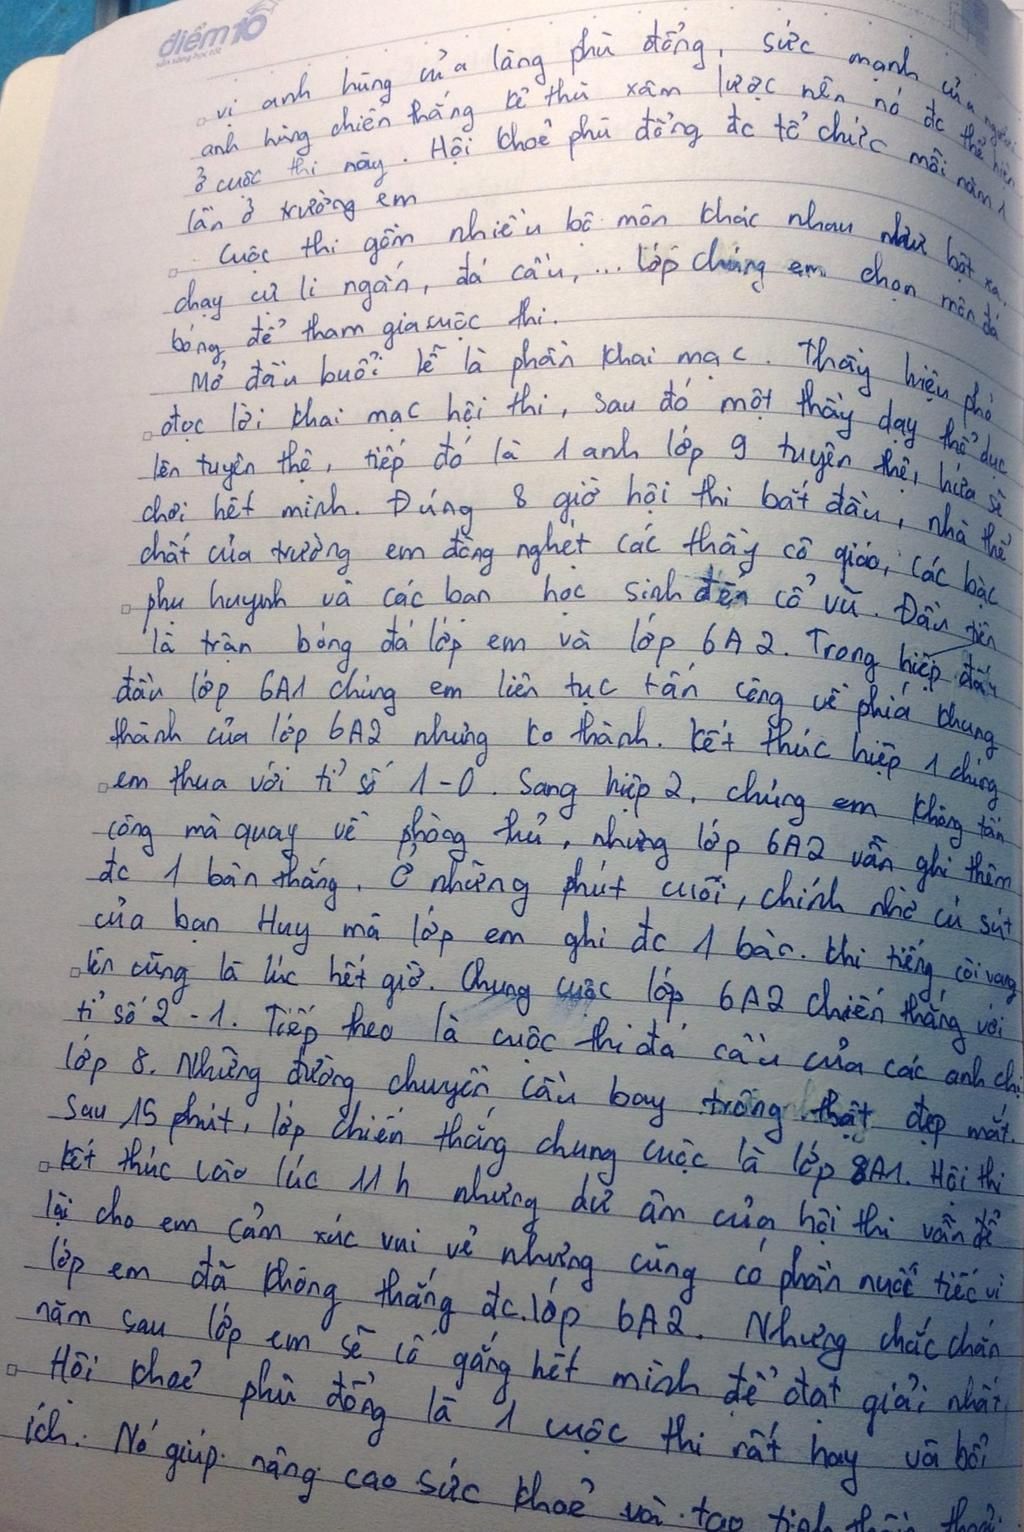 điểm10
vị anh hùng của làng phù đổng, sức mạnh của người
anh hùng chiến thắng kẻ thù xâm lược nên nó đc thể hiện
ở cuộc thi này. Hội khoẻ phù đổng đc tổ chức mỗi năm 1
lần ở trường em
Cuộc thi gồm nhiều bộ môn khác nhau như bật xa,
chạy cự li ngắn, đá cầu, ... lớp chúng em chọn môn đá
bóng để tham gia cuộc thi.
Mở đầu buổi lễ là phần khai mạc. Thầy hiệu phó
đọc lời khai mạc hội thi, sau đó một thầy dạy thể dục
lên tuyên thệ, tiếp đó là 1 anh lớp 9 tuyên thệ, hứa sẽ
chơi hết mình. Đúng 8 giờ hội thi bắt đầu, nhà thể
chất của trường em đông nghẹt các thầy cô giáo, các bậc
phụ huynh và các bạn học sinh đến cổ vũ. Đầu tiên
là trận bóng đá lớp em và lớp 6A2. Trong hiệp đấu
đầu lớp 6A1 chúng em liên tục tấn công về phía khung
thành của lớp 6A2 nhưng ko thành. Kết thúc hiệp 1 chúng
em thua với tỉ số 1-0. Sang hiệp 2, chúng em không tấn
công mà quay về phòng thủ, nhưng lớp 6A2 vẫn ghi thêm
đc 1 bàn thắng. Ở những phút cuối, chính nhờ cú sút
của bạn Huy mà lớp em ghi đc 1 bàn. Khi tiếng còi vang
lên cũng là lúc hết giờ. Chung cuộc lớp 6A2 chiến thắng với
tỉ số 2-1. Tiếp theo là cuộc thi đá cầu của các anh chị
lớp 8. Những đường chuyền cầu bay trông thật đẹp mắt.
Sau 15 phút, lớp chiến thắng chung cuộc là lớp 8A1. Hội thi
kết thúc vào lúc 11h nhưng dư âm của hội thi vẫn để
lại cho em cảm xúc vui vẻ nhưng cũng có phần nuối tiếc vì
lớp em đã không thắng đc lớp 6A2. Nhưng chắc chắn
năm sau lớp em sẽ cố gắng hết mình để đạt giải nhất
Hội khoẻ phù đổng là 1 cuộc thi rất hay và bổ
ích. Nó giúp nâng cao sức khoẻ và tạo tinh thần